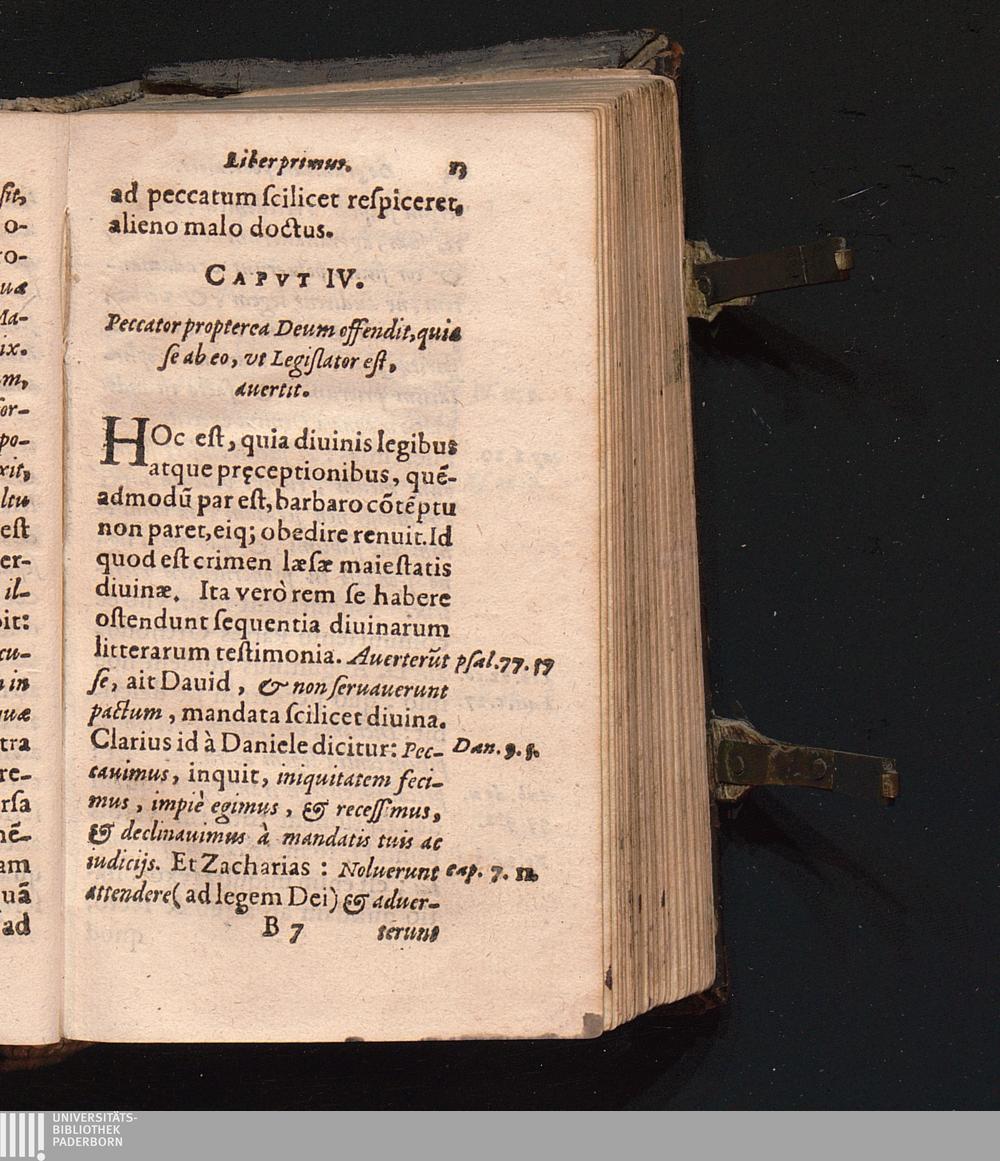 Liber primus.
ad peccatum ſcilicet reſpiceret,
alieno malo doctus.
CAPVT IV.
Peccator propterea Deum offendit, quia
ſe ab eo, vt Legiſlator eſt,
auertit.
HOc eſt, quia diuinis legibus
atque pręceptionibus, quẽ-
admodũ par eſt, barbaro cõtẽptu
non paret, eiq; obedire renuit. Id
quod eſt crimen læſæ maieſtatis
diuinæ. Ita verò rem ſe habere
oſtendunt ſequentia diuinarum
litterarum teſtimonia. Auerterũt psal. 77. 57
ſe, ait Dauid, & non ſeruauerunt
pactum, mandata ſcilicet diuina.
Clarius id à Daniele dicitur: Pec- Dan. 9. 5.
cauimus, inquit, iniquitatem feci-
mus, impiè egimus, & receſſimus,
& declinauimus à mandatis tuis ac
iudicijs. Et Zacharias: Noluerunt cap. 7. 11.
attendere (ad legem Dei) & aduer-
B 7 terunt
ſit,
o-
ro-
uæ
Ma-
ix.
m,
for-
po-
xit,
ltu
eſt
er-
il-
bit:
cu-
n in
quæ
tra
re-
rſa
nẽ-
am
uã
ad
UNIVERSITÄTS-
BIBLIOTHEK
PADERBORN